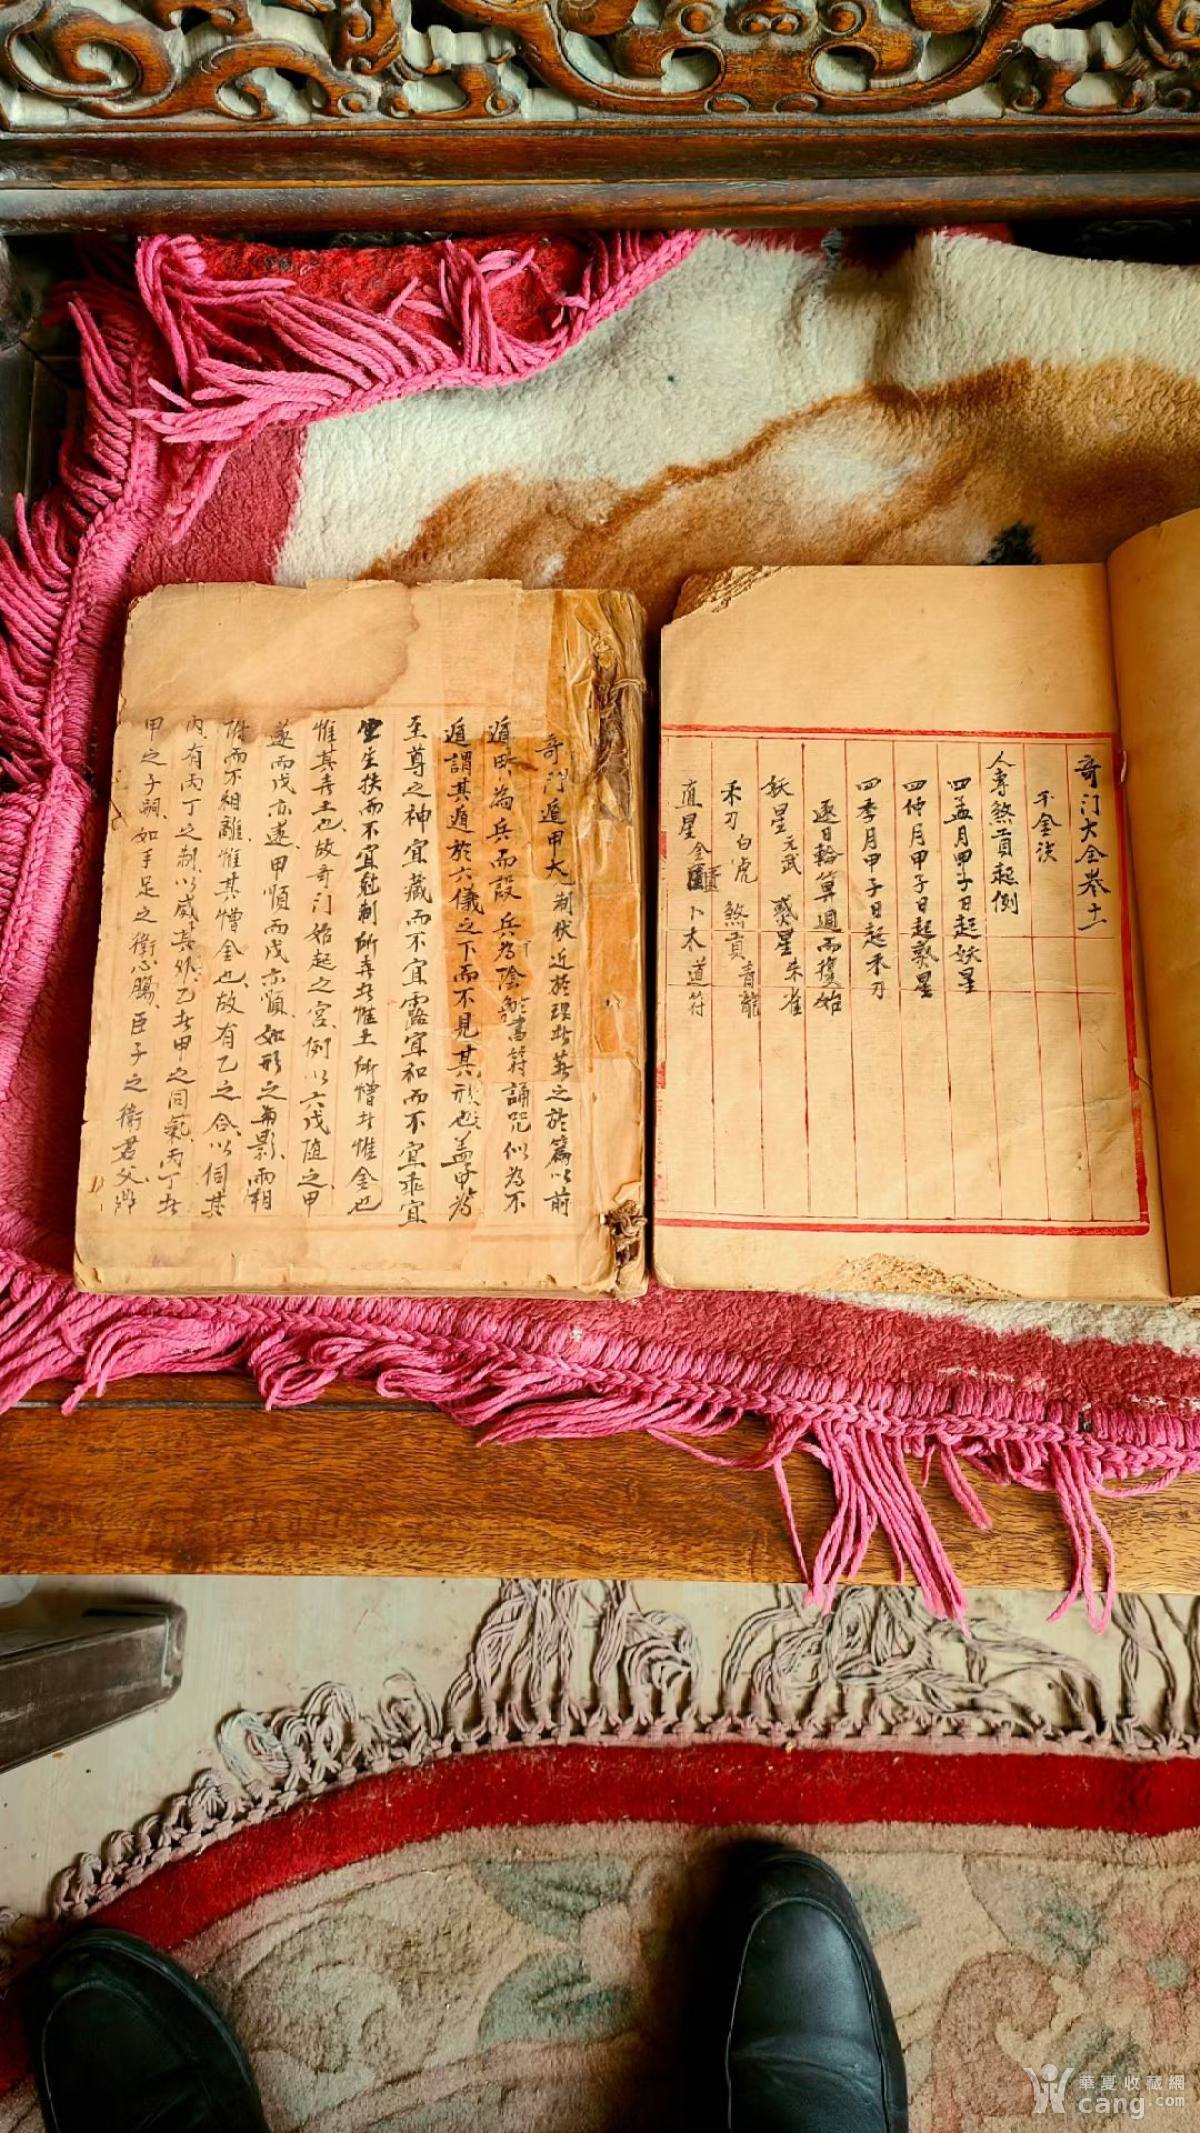 奇门大全卷十一
千金诀
人专煞贡起例
四孟月甲子日起妖星
四仲月甲子日起惑星
四季月甲子日起禾刀
逐日轮算週而復始
妖星元武 惑星朱雀
禾刀白虎 煞貢青龍
直星金匱 卜木道符
奇门遁甲大 制伏近於理
之於篇以前
遁甲為兵而設兵為陰 書符誦咒似為不
遁謂其遁於六儀之下而不見其形也盖甲為
至尊之神宜藏而不宜露宜和而不宜乖宜
生扶而不宜尅制所喜者惟土所憎者惟金也
惟其喜土也故奇门始起之宫例以六戊随之甲
逆而戊亦逆甲順而戊亦順如形之 影两相
附而不相離惟其憎金也故有乙之合以伺其
内有丙丁之制以威其外乙者甲之同氣丙丁者
甲之子嗣如手足之衛心腸臣子之衛君父
華夏收藏網
cang.com